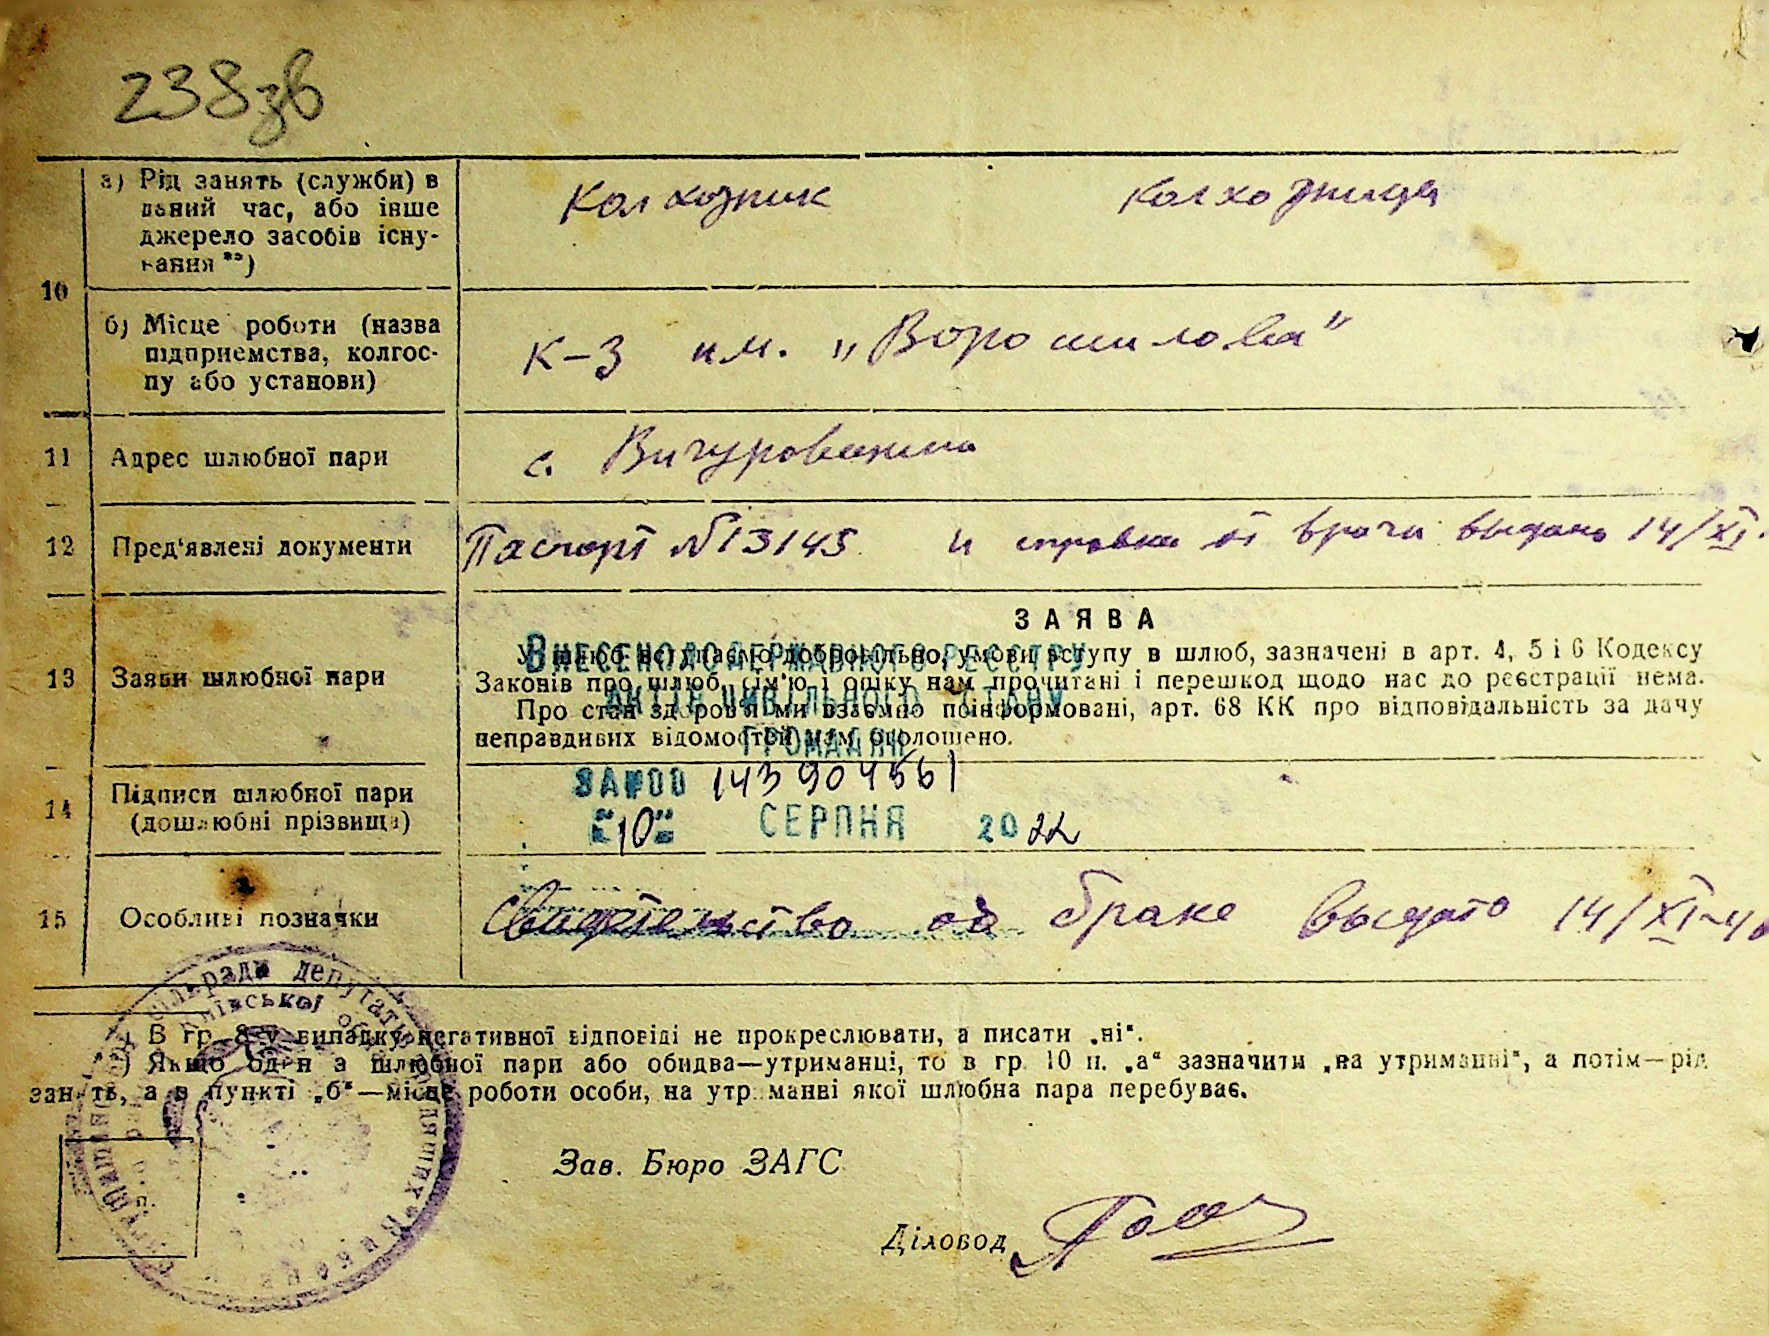 238зв
10
а) Рід занять (служби) в
даний час, або інше
джерело засобів існу-
вання **)
Колхозник Колхозница
б) Місце роботи (назва
підприємства, колгос-
пу або установи)
К-З им. „Ворошилова"
11 Адрес шлюбної пари
с. Вигуровщина
12 Пред'явлені документи
Паспорт №13145 и справка от врача выдана 14/XI
13 Заяви шлюбної пари
ЗАЯВА
У шлюб вступаємо добровільно, умови вступу в шлюб, зазначені в арт. 4, 5 і 6 Кодексу
Законів про шлюб, сім'ю і опіку нам прочитані і перешкод щодо нас до реєстрації нема.
Про стан здоров'я ми взаємно поінформовані, арт. 68 КК про відповідальність за дачу
неправдивих відомостей нам оголошено.
ВНЕСЕНО ДО ДЕРЖАВНОГО РЕЄСТРУ
АКТІВ ЦИВІЛЬНОГО СТАНУ
ГРОМАДЯН
ЗА №00 143904561
"10" СЕРПНЯ 2022
14 Підписи шлюбної пари
(дошлюбні прізвища)
15 Особливі позначки
Свидетельство об браке выдато 14/XI-4
*) В гр. 8 у випадку негативної відповіді не прокреслювати, а писати „ні".
**) Якщо один з шлюбної пари або обидва—утриманці, то в гр. 10 п. „а" зазначити „на утриманні", а потім—рід
занять, а в пункті „б"—місце роботи особи, на утриманні якої шлюбна пара перебуває.
Зав. Бюро ЗАГС
Діловод